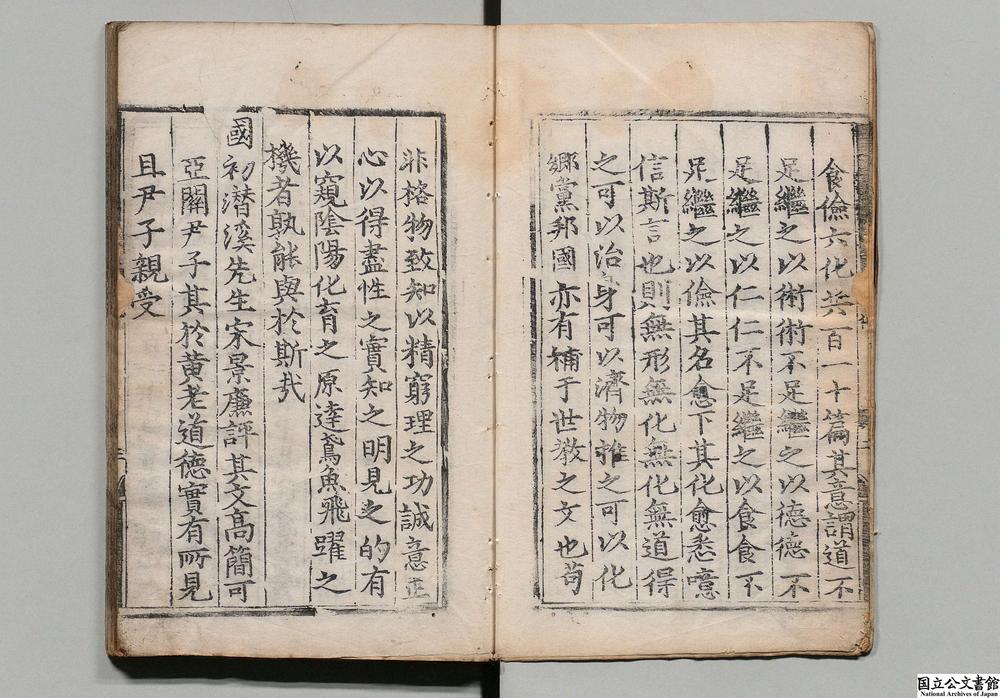 食儉六化共百一十篇其意謂道不
足繼之以術術不足繼之以德德不
足繼之以仁仁不足繼之以食食不
足繼之以儉其名愈下其化愈悉噫
信斯言也則無形無化無化無道得
之可以治身可以濟物推之可以化
鄉黨邦國亦有補于世教之文也苟
非格物致知以精窮理之功誠意正
心以得盡性之實知之明見之的有
以窺陰陽化育之原達鳶魚飛躍之
機者孰能與於斯哉
國初潛溪先生宋景廉評其文高簡可
亞關尹子其於黃老道德實有所見
且尹子親受
国立公文書館
National Archives of Japan